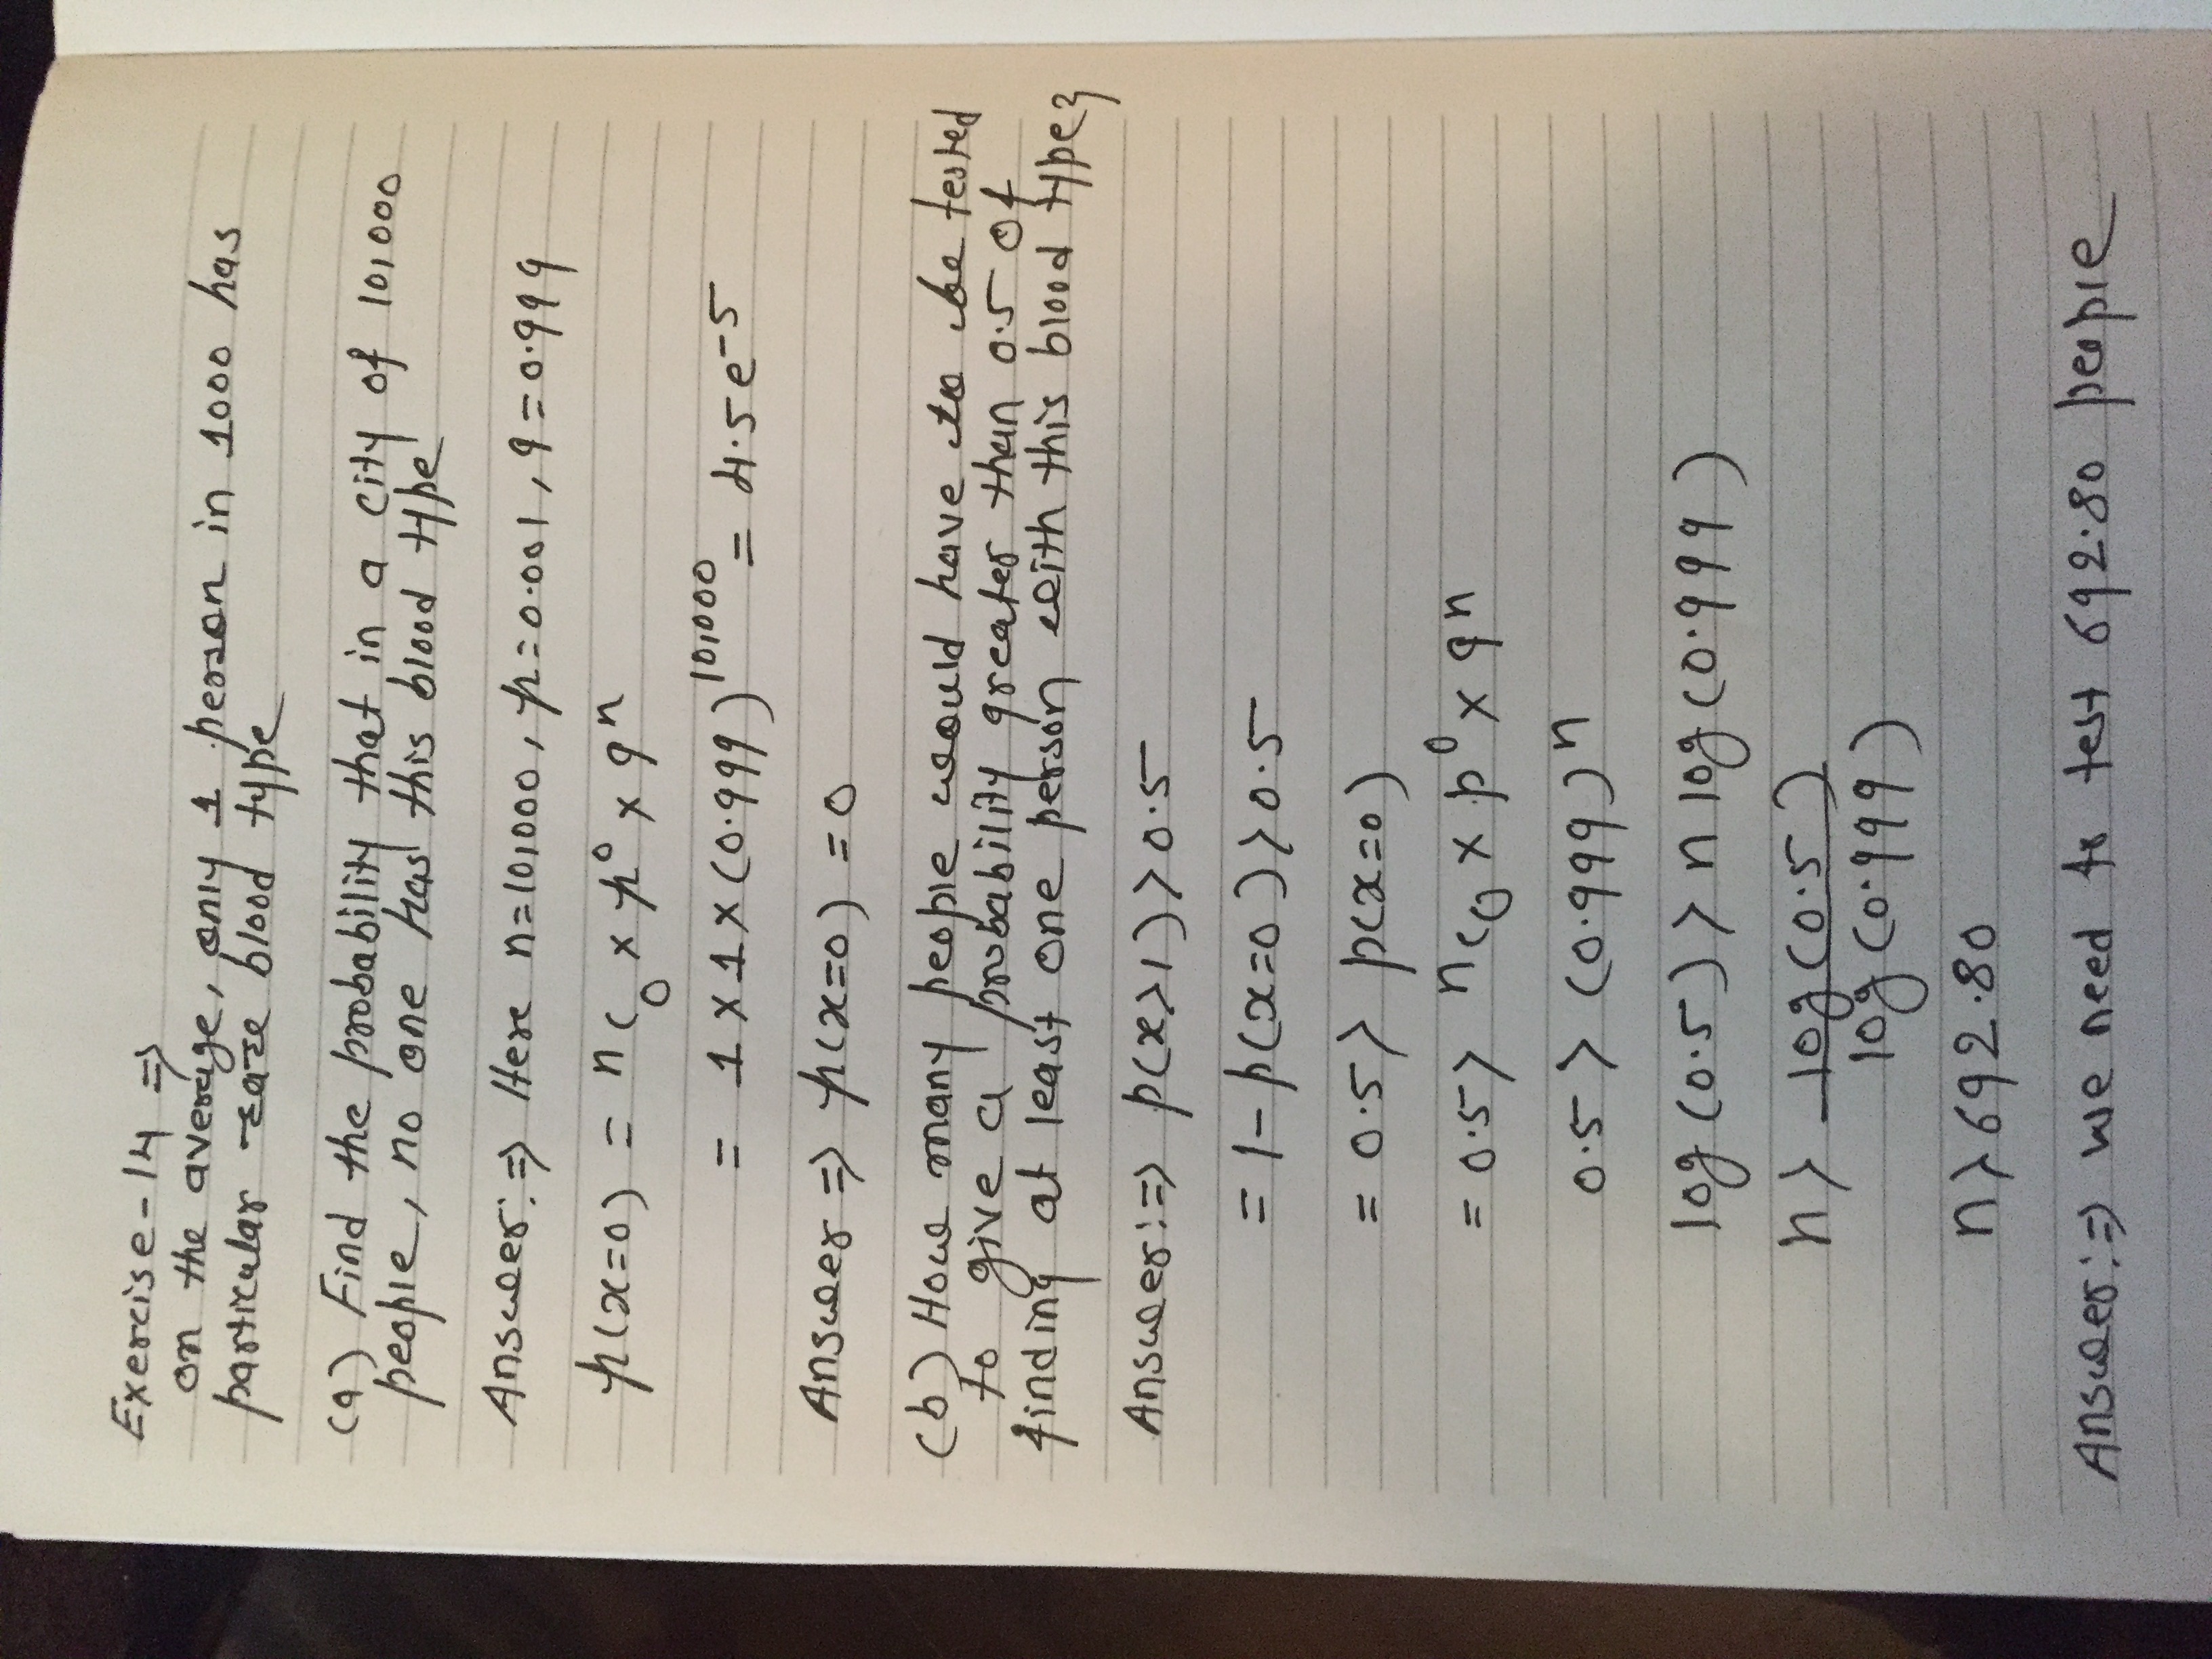 Exercise-14 ⇒
on the average, only 1 person in 1000 has
particular rare blood type
(a) Find the probability that in a city of 10,000
people, no one has this blood type
Answer:⇒ Here n=10,000, p=0.001, q=0.999
p(x=0) = nC₀ × p⁰ × qⁿ
= 1×1×(0.999)^10,000 = 4.5e-5
Answer ⇒ p(x=0) =0
(b) How many people would have to be tested
to give a probability greater than 0.5 of
finding at least one person with this blood type?
Answer:⇒ p(x>1)>0.5
= 1-p(x=0)>0.5
= 0.5> p(x=0)
= 0.5> nC₀ × p⁰ × qⁿ
0.5 > (0.999)ⁿ
log(0.5)> n log(0.999)
n> log(0.5)
log(0.999)
n>692.80
Answer:⇒ we need to test 692.80 people